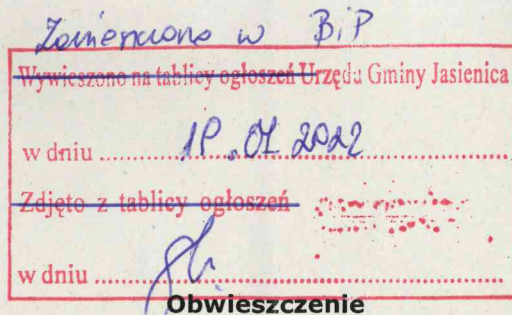 Zamieszczono w BiP
Wywieszono na tablicy ogłoszeń Urzędu Gminy Jasienica
w dniu .01 2022
Zdjęto z tablicy ogłoszeń
w dniu
Obwieszczenie